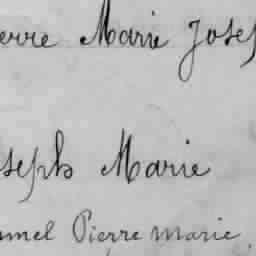 erre Marie Josep
oseph Marie
mel Pierre marie